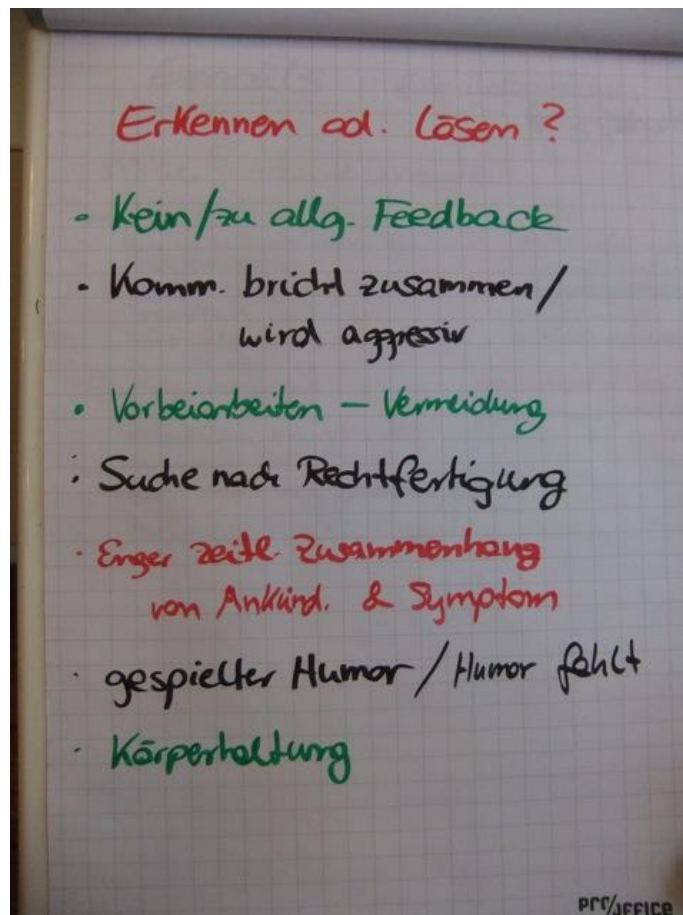 Erkennen od. Lösen?
• Kein/zu allg. Feedback
• Komm. bricht zusammen/
wird aggressiv
• Vorbeiarbeiten – Vermeidung
: Suche nach Rechtfertigung
· Enger zeitl. Zusammenhang
von Ankünd. & Symptom
· gespielter Humor / Humor fehlt
· Körperhaltung